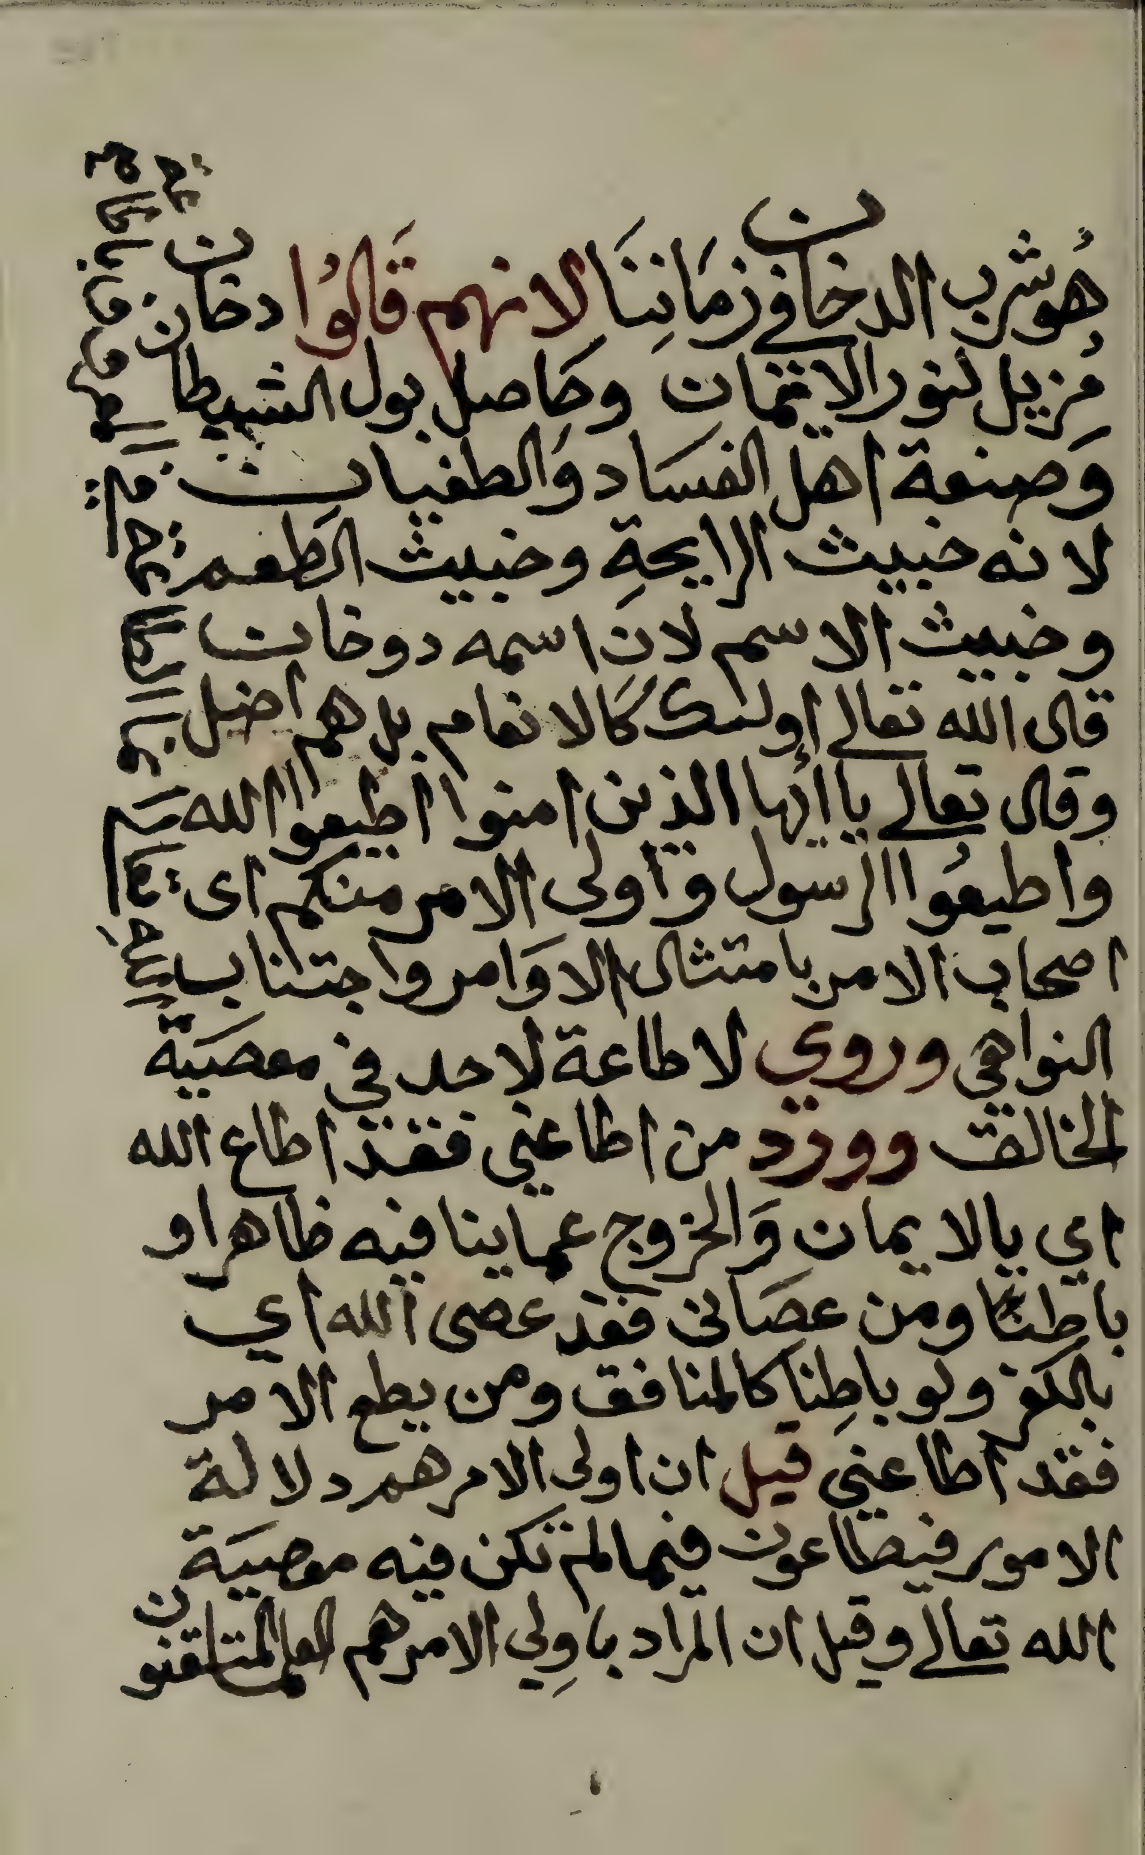 هُوشرب الدخان في زمَانِنَا لانهم قَالوُا دخان
مُزيل لنور الايمان وحَاصل بول الشيطان
وَصنعة اهل الفسَاد وَالطغيان
لانه خبيث الرايحةِ وخبيث الطعم
وخبيث الاسم لان اسمه دوخان
قال الله تعالى اولئك كَالانعام بل هم اضل
وقال تعالى يا ايها الذين امنوا اطيعوا الله
واطيعُوا الرسول واولى الامر منكم اى
اصحاب الامر بامتثال الاوَامر واجتناب
النواهي وروي لاطاعة لاحد في معصيَة
الخالق وورد من اطاعني فقد اطاع الله
اي بالايمان وَالخروج عما ينافيه ظاهرا و
باطنًا ومن عصَانى فقد عصى الله اي
بالكفر ولو باطِنا كالمنافق ومن يطع الامر
فقد اطاعني قيل ان اولى الامر هم دلالة
الامور فيطاعون فيما لم تكن فيه معصيَة
الله تعالى وقيل ان المراد باولِي الامر هم العلما المتقون